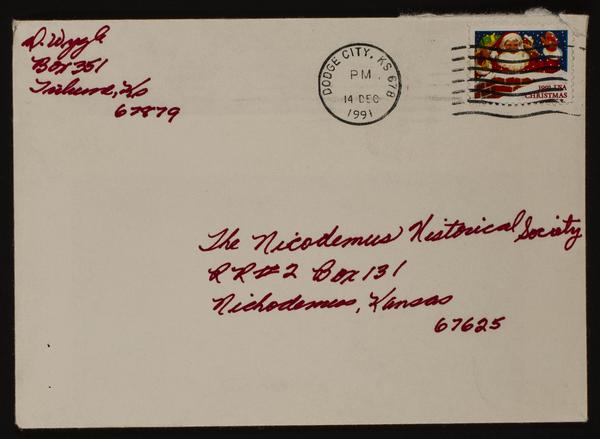 D. Wyzle
Box 351
Tribune, Ks
67879
DODGE CITY, KS 678
PM
14 DEC
1991
1991 USA
CHRISTMAS
The Nicodemus Historical Society
RR#2 Box 131
Nichodemus, Kansas
67625